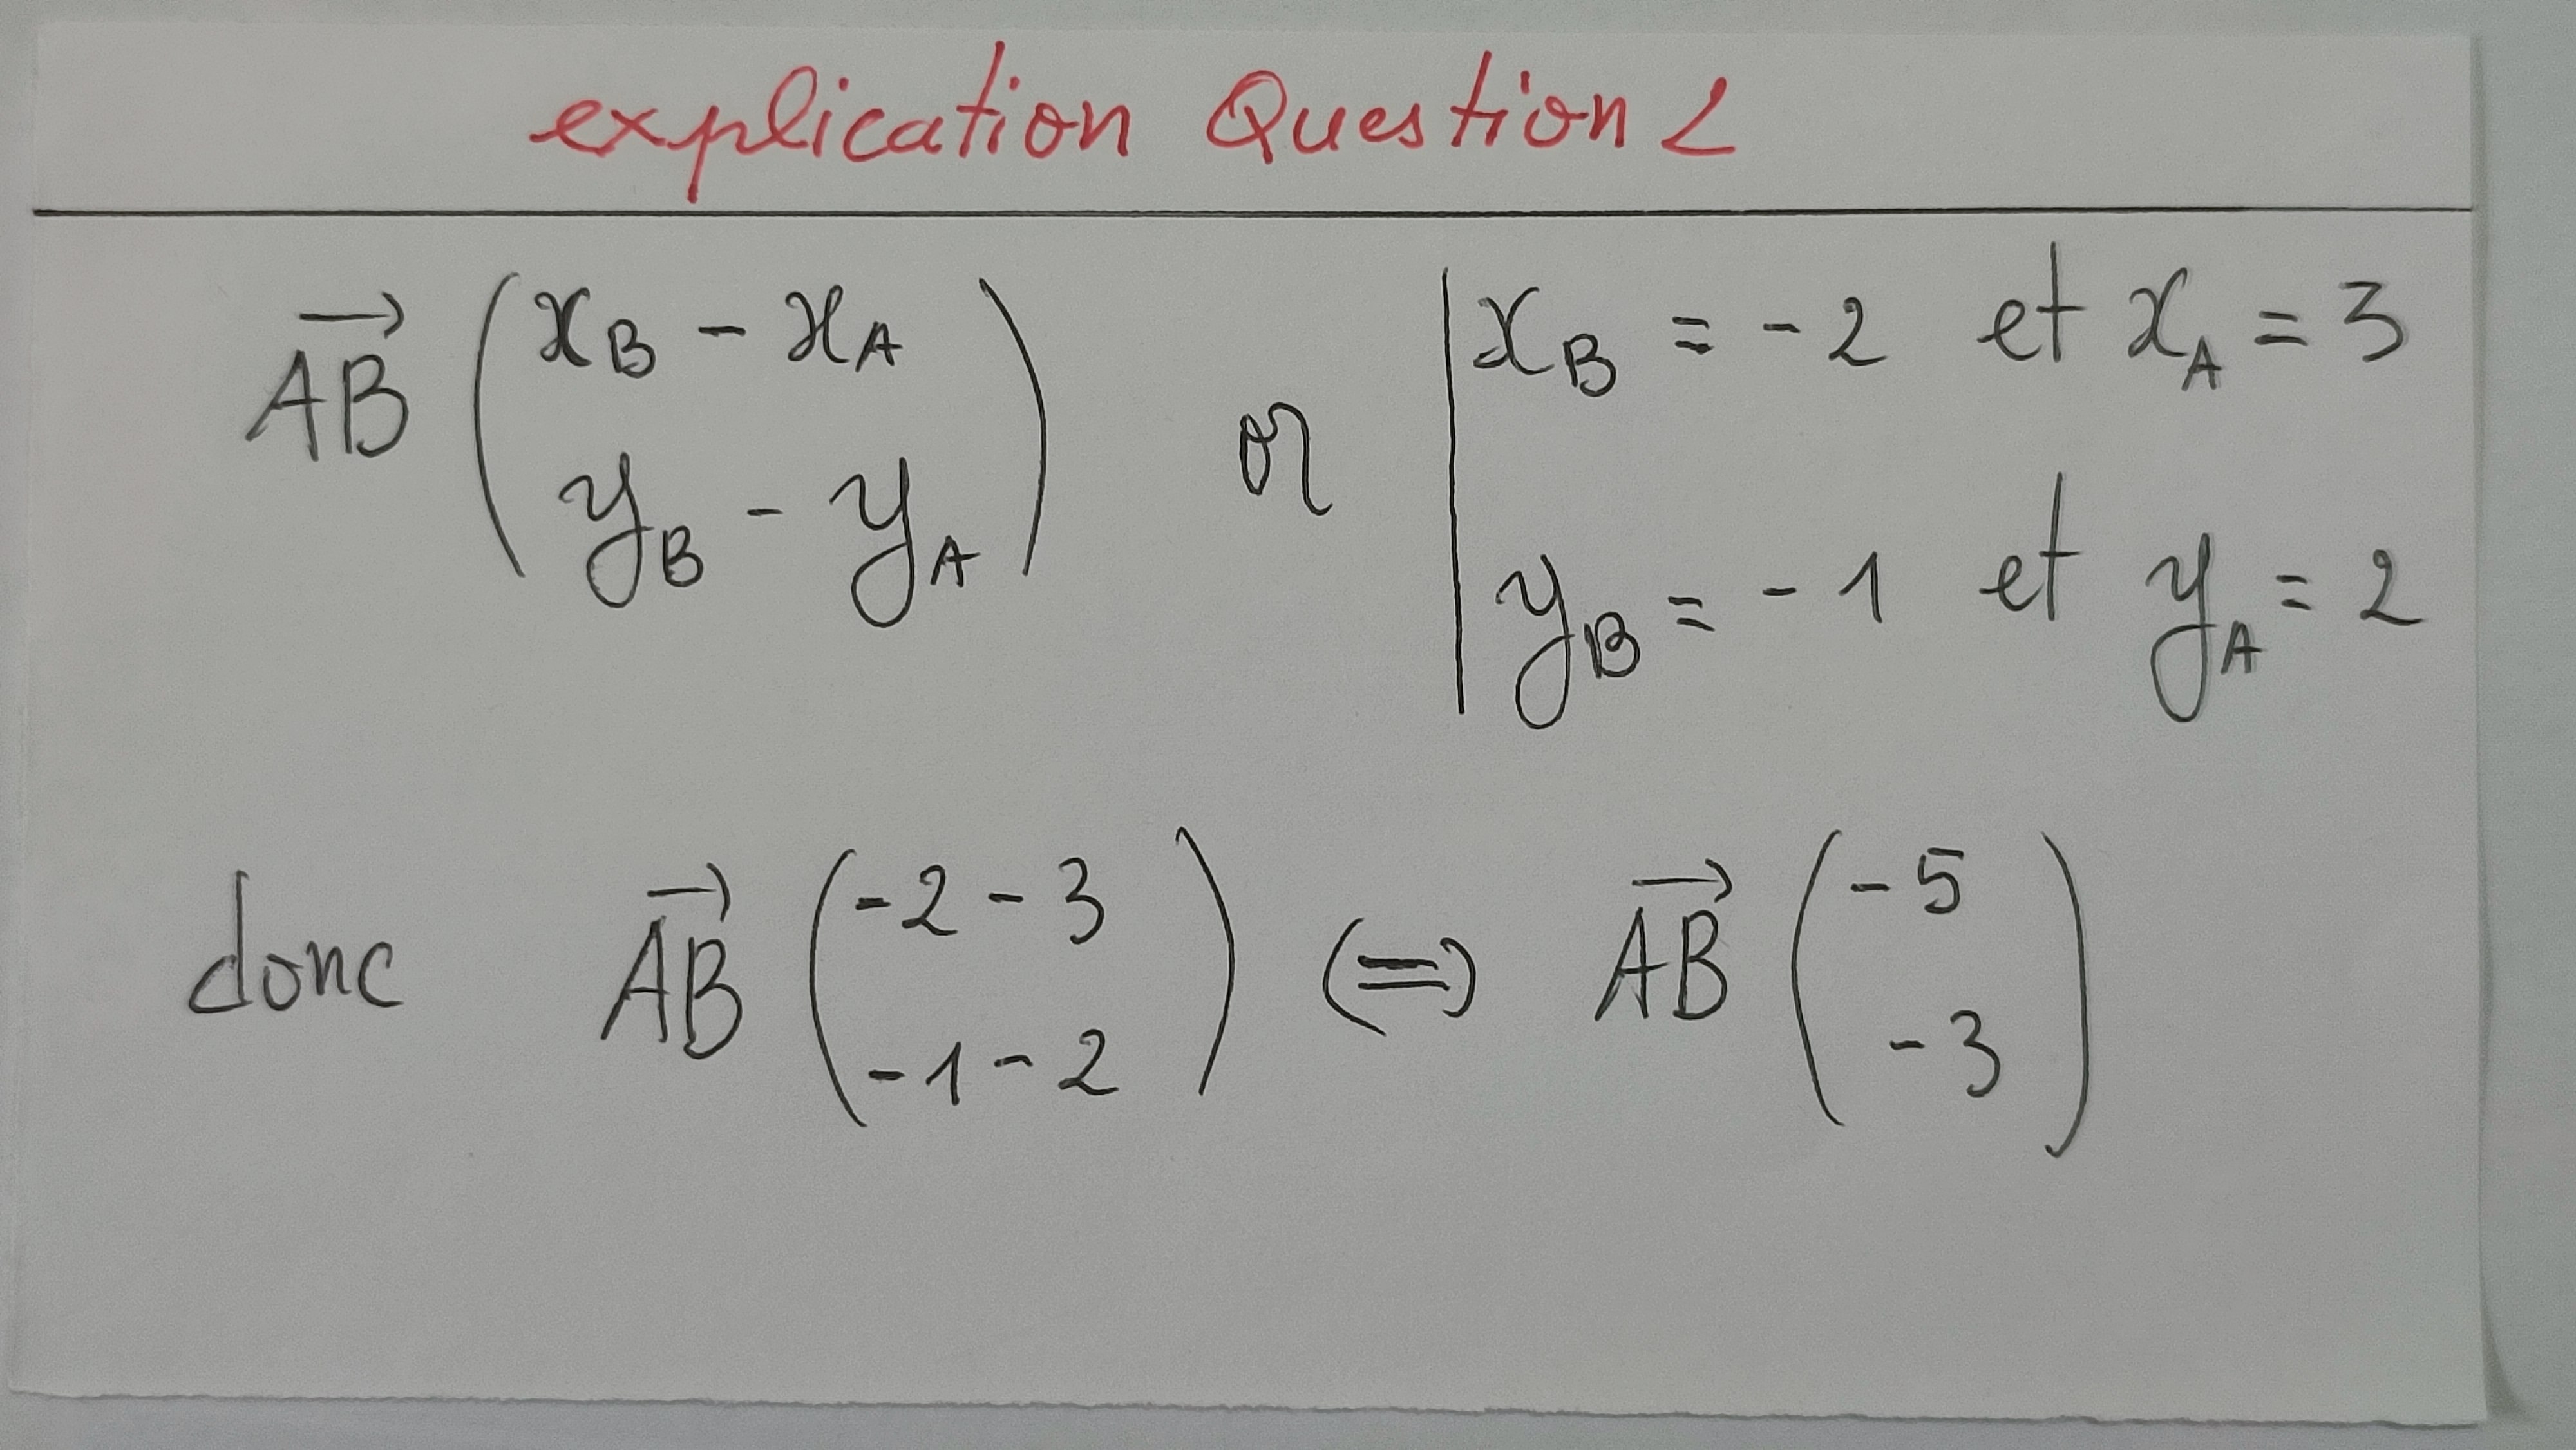 explication Question 2
$\overrightarrow{AB} \begin{pmatrix} x_B - x_A \\ y_B - y_A \end{pmatrix}$ or $\left| \begin{matrix} x_B = -2 \text{ et } x_A = 3 \\ y_B = -1 \text{ et } y_A = 2 \end{matrix} \right.$
donc $\overrightarrow{AB} \begin{pmatrix} -2 - 3 \\ -1 - 2 \end{pmatrix} \Leftrightarrow \overrightarrow{AB} \begin{pmatrix} -5 \\ -3 \end{pmatrix}$